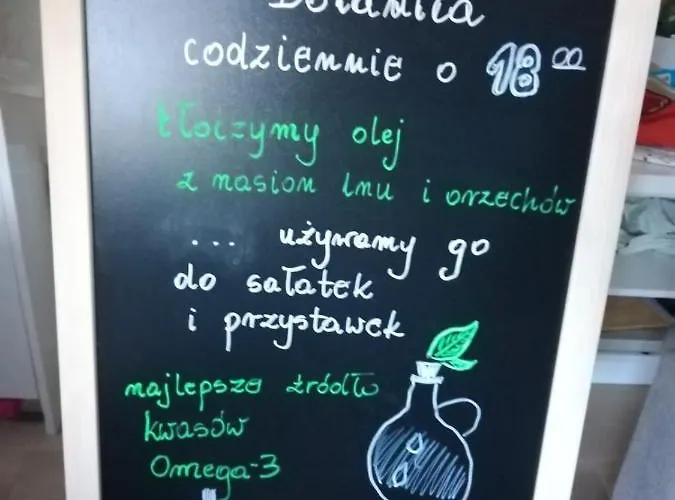 codziennie o 18 00
tłoczymy olej
z nasion lnu i orzechów
... używamy go
do sałatek
i przystawek
najlepsze źródło
kwasów
Omega-3